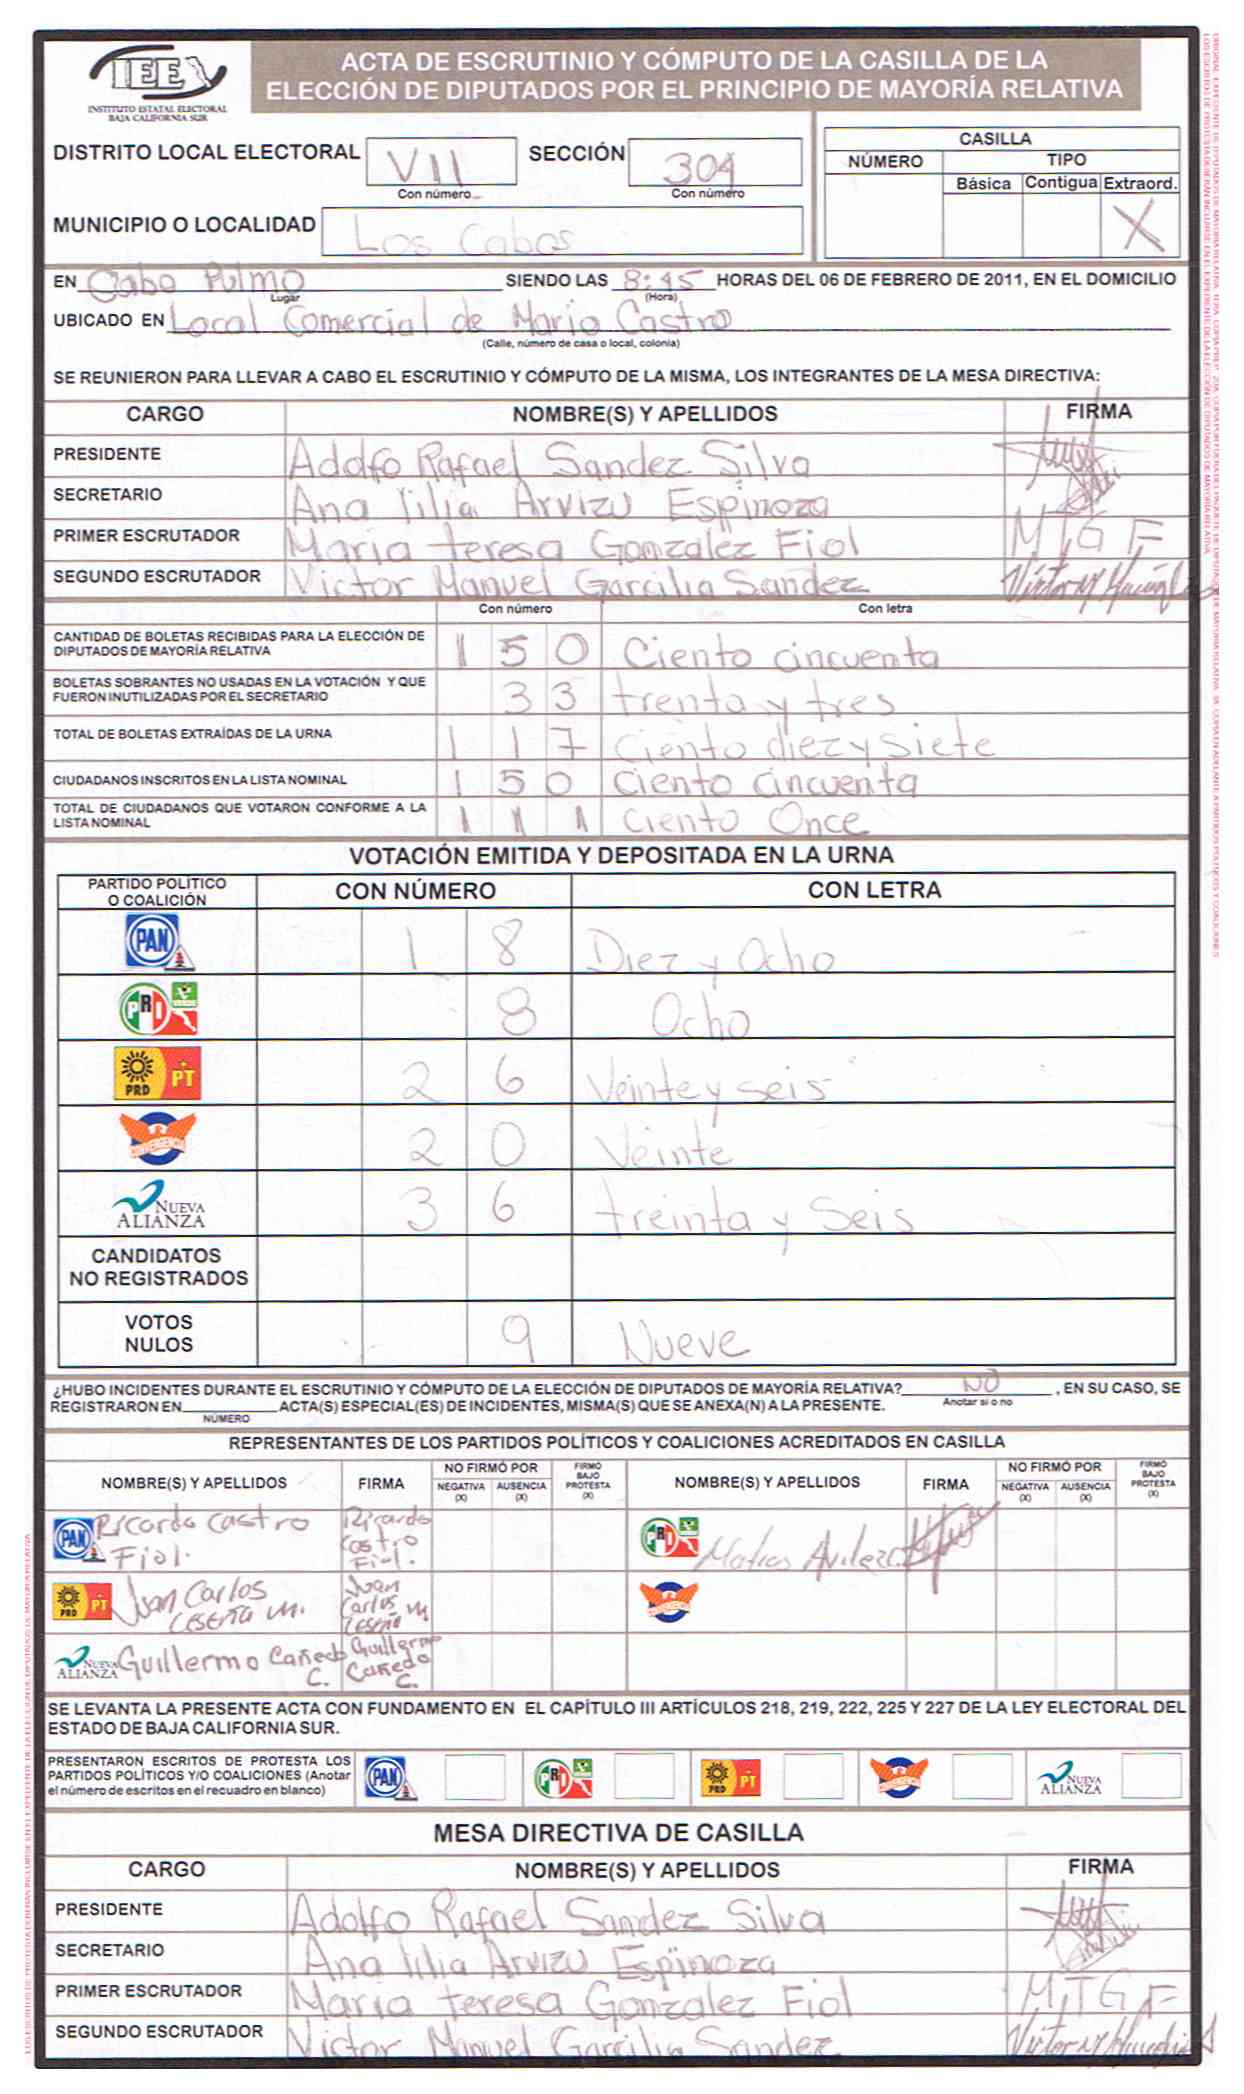 IEE
INSTITUTO ESTATAL ELECTORAL
BAJA CALIFORNIA SUR
ACTA DE ESCRUTINIO Y CÓMPUTO DE LA CASILLA DE LA
ELECCIÓN DE DIPUTADOS POR EL PRINCIPIO DE MAYORÍA RELATIVA
DISTRITO LOCAL ELECTORAL VII SECCIÓN 304
Con número Con número
CASILLA
NÚMERO TIPO
Básica Contigua Extraord.
X
MUNICIPIO O LOCALIDAD Los Cabos
EN Cabo Pulmo SIENDO LAS 8:45 HORAS DEL 06 DE FEBRERO DE 2011, EN EL DOMICILIO
Lugar (Hora)
UBICADO EN Local Comercial de Mario Castro
(Calle, número de casa o local, colonia)
SE REUNIERON PARA LLEVAR A CABO EL ESCRUTINIO Y CÓMPUTO DE LA MISMA, LOS INTEGRANTES DE LA MESA DIRECTIVA:
CARGO NOMBRE(S) Y APELLIDOS FIRMA
PRESIDENTE Adolfo Rafael Sandez Silva
SECRETARIO Ana lilia Arvizu Espinoza
PRIMER ESCRUTADOR Maria teresa Gonzalez Fiol MTGF
SEGUNDO ESCRUTADOR Victor Manuel Garcilia Sandez
Con número Con letra
CANTIDAD DE BOLETAS RECIBIDAS PARA LA ELECCIÓN DE
DIPUTADOS DE MAYORÍA RELATIVA 150 Ciento cincuenta
BOLETAS SOBRANTES NO USADAS EN LA VOTACIÓN Y QUE
FUERON INUTILIZADAS POR EL SECRETARIO 33 trenta y tres
TOTAL DE BOLETAS EXTRAÍDAS DE LA URNA 117 Ciento diez y siete
CIUDADANOS INSCRITOS EN LA LISTA NOMINAL 150 Ciento cincuenta
TOTAL DE CIUDADANOS QUE VOTARON CONFORME A LA
LISTA NOMINAL 111 Ciento Once
VOTACIÓN EMITIDA Y DEPOSITADA EN LA URNA
PARTIDO POLÍTICO
O COALICIÓN CON NÚMERO CON LETRA
PAN 18 Diez y Ocho
PRI 8 Ocho
PRD PT 26 Veinte y seis
CONVERGENCIA 20 Veinte
NUEVA ALIANZA 36 treinta y Seis
CANDIDATOS
NO REGISTRADOS
VOTOS
NULOS 9 Nueve
¿HUBO INCIDENTES DURANTE EL ESCRUTINIO Y CÓMPUTO DE LA ELECCIÓN DE DIPUTADOS DE MAYORÍA RELATIVA? NO , EN SU CASO, SE
Anotar si o no
REGISTRARON EN ACTA(S) ESPECIAL(ES) DE INCIDENTES, MISMA(S) QUE SE ANEXA(N) A LA PRESENTE.
NÚMERO
REPRESENTANTES DE LOS PARTIDOS POLÍTICOS Y COALICIONES ACREDITADOS EN CASILLA
NOMBRE(S) Y APELLIDOS FIRMA NO FIRMÓ POR NEGATIVA (X) AUSENCIA (X) FIRMÓ BAJO PROTESTA (X) NOMBRE(S) Y APELLIDOS FIRMA NO FIRMÓ POR NEGATIVA (X) AUSENCIA (X) FIRMÓ BAJO PROTESTA (X)
PAN Ricardo Castro Fiol. Ricardo Castro Fiol. PRI Matias Avilez
PRD PT Juan Carlos Ceseña M. Juan Carlos Ceseña M
NUEVA ALIANZA Guillermo Cañedo C. Guillermo Cañedo C.
SE LEVANTA LA PRESENTE ACTA CON FUNDAMENTO EN EL CAPÍTULO III ARTÍCULOS 218, 219, 222, 225 Y 227 DE LA LEY ELECTORAL DEL
ESTADO DE BAJA CALIFORNIA SUR.
PRESENTARON ESCRITOS DE PROTESTA LOS
PARTIDOS POLÍTICOS Y/O COALICIONES (Anotar
el número de escritos en el recuadro en blanco)
PAN PRI PRD PT CONVERGENCIA NUEVA ALIANZA
MESA DIRECTIVA DE CASILLA
CARGO NOMBRE(S) Y APELLIDOS FIRMA
PRESIDENTE Adolfo Rafael Sandez Silva
SECRETARIO Ana lilia Arvizu Espinoza
PRIMER ESCRUTADOR Maria teresa Gonzalez Fiol MTGF
SEGUNDO ESCRUTADOR Victor Manuel Garcilia Sandez